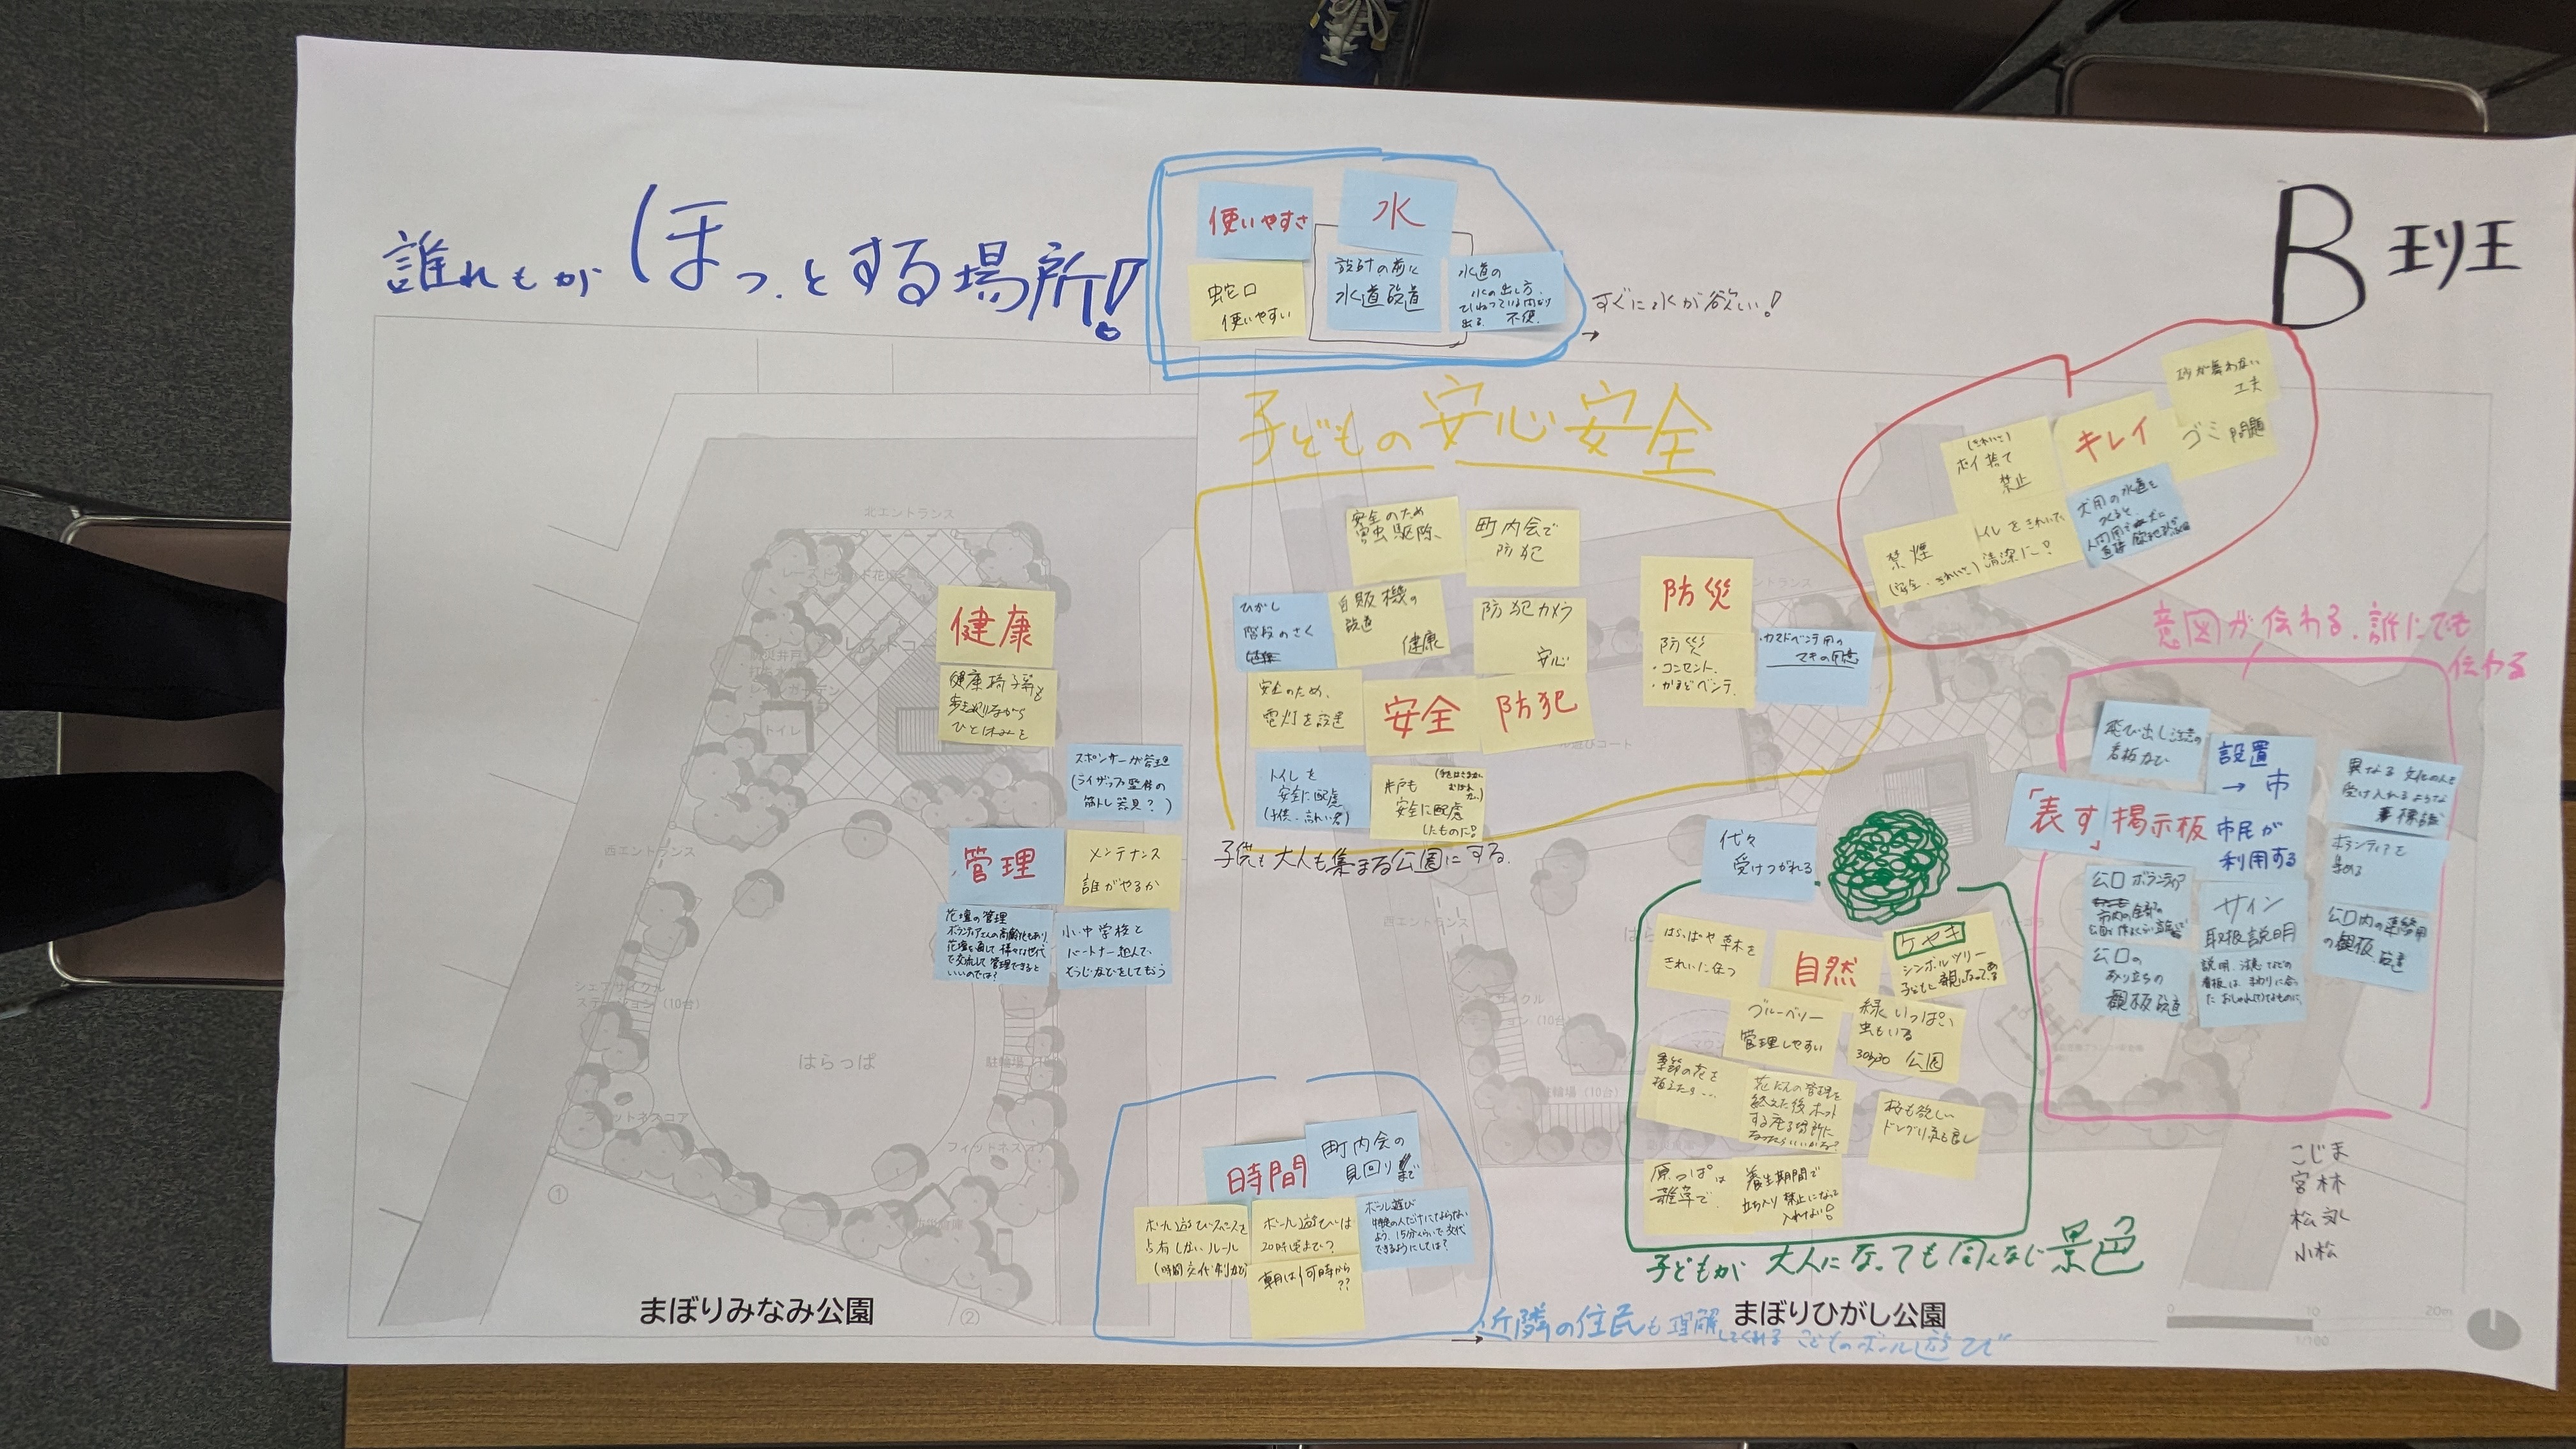 B班
誰れもがほっとする場所!
使いやすさ
水
蛇口
使いやすい
設計の前に
水道改造
水道の
水の出し方
出る 不便.
すぐに水が欲しい!
子どもの安心安全
安全のため
害虫駆除、
町内会で
防犯
ひがし
階段のさく
自販機の
改造
健康
防犯カメラ
安心
安全のため、
電灯を設置
安全
防犯
トイレを
安全に配慮
井戸も
安全に配慮
したものに!
防災
防災
・コンセント.
・かまどベンチ.
・カマドベンチ用の
マキの用意
子供も大人も集まる公園にする.
砂が舞わない
工夫
(きれいさ)
ポイ捨て
禁止
キレイ
ゴミ問題
禁煙
(安全・きれいさ)
トイレをきれいに
清潔に!
犬用の水道を
つくると、
意図が伝わる.誰にでも
伝わる
飛び出し注意の
看板など
設置
→市
市民が
利用する
「表す」
掲示板
異なる文化の人を
受け入れるような
ボランティアを
集める
公口ボランティア
サイン
取扱説明
説明、注意などの
看板は、まわりに合っ
公口の
あり立ちの
看板改造
公口内の連絡用
の看板 改造
健康
健康椅子等も
ひと休みを
スポンサーが管理
(ライザップ監修の
筋トレ器具?)
管理
メンテナンス
誰がやるか
花壇の管理
ボランティアさんの高齢化もあり、
花壇を通して様々な世代
で交流して管理できると
いいのでは?
小・中学校と
パートナー組んで、
そうじなどをしてもらう
代々
受けつがれる
はらっぱや草木を
きれいに保つ
自然
ケヤキ
シンボルツリー
子どもに親しなってる
ブルーベリー
管理しやすい
緑いっぱい
虫もいる
公園
季節の花を
植えたら…
花だんの管理を
終えた後ホット
する座る場所に
なったらいいかな?
桜も欲しい
ドングリ系も良し
原っぱは
雑草で
養生期間で
立ち入り禁止になって
入れない!
子どもが大人になっても同んなじ景色
時間
町内会の
見回りまで
ボール遊びフェンスを
占有しないルール
(時間交代制など)
ボール遊びは
20時頃まで?
朝は何時から
??
ボール遊び
特定の人だけにならない
よう、15分くらいで交代
できるようにしては?
近隣の住民も理解してくれるこどものボール遊び
こじま
宮林
松永
小松
北エントランス
トイレ
西エントランス
シェアサイクル
ステーション(10台)
はらっぱ
フィットネスコア
西エントランス
①
②
まぼりみなみ公園
まぼりひがし公園
0 10 20m